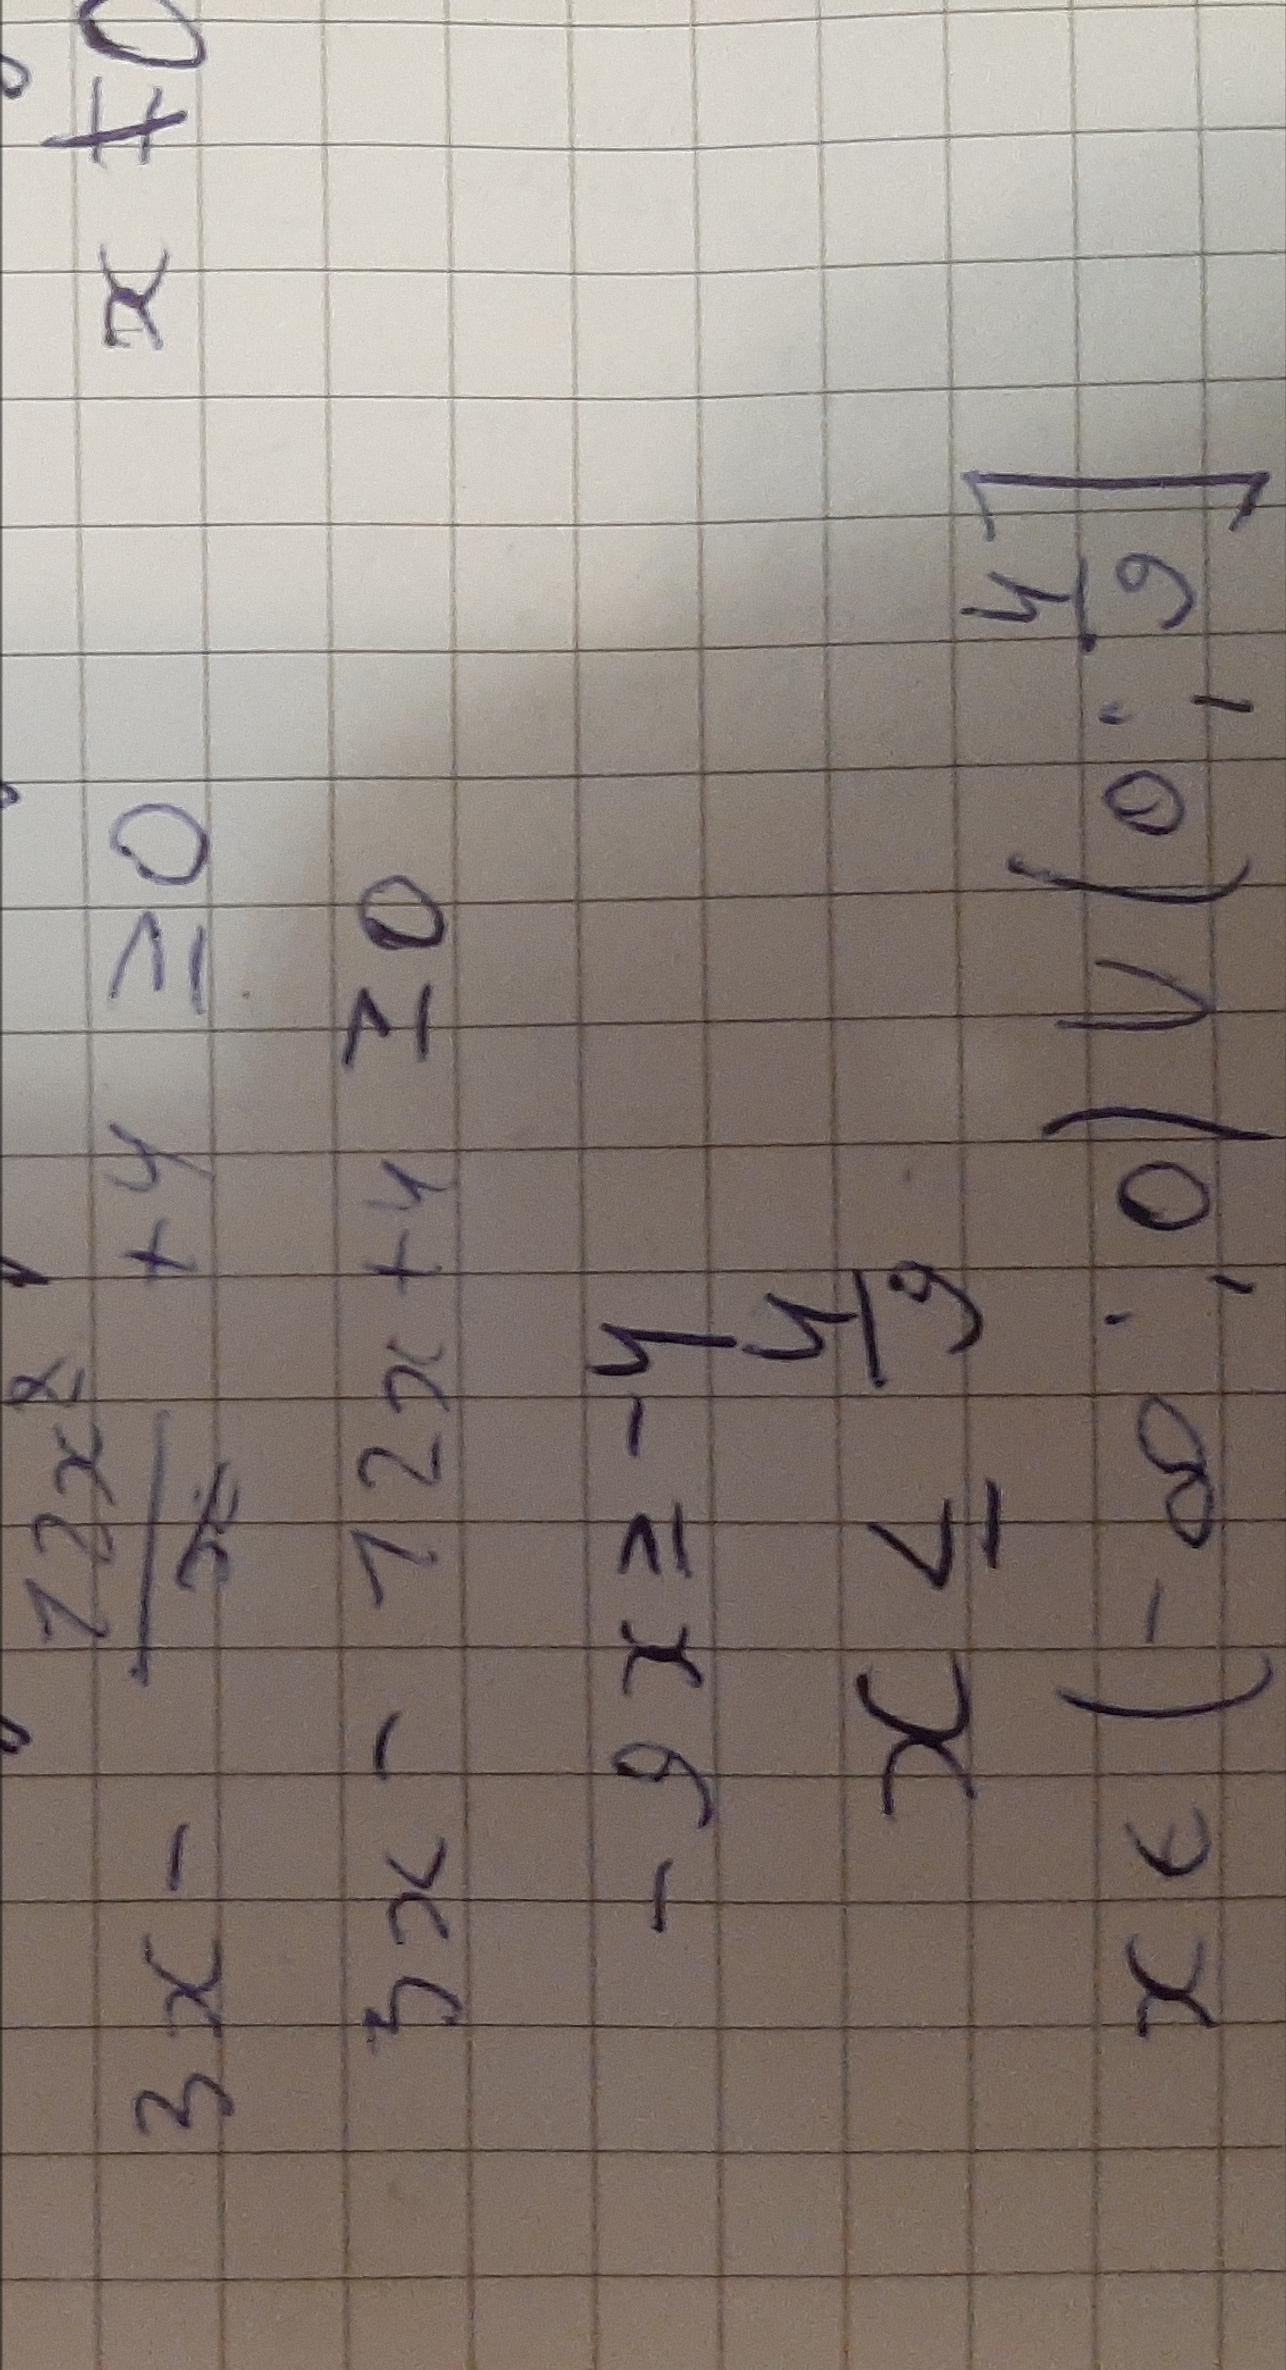 3x - 12x²/x + 4 ≥ 0    x ≠ 0
3x - 12x + 4 ≥ 0
-9x ≥ -4
x ≤ 4/9
x ∈ (-∞; 0) ∪ (0; 4/9]